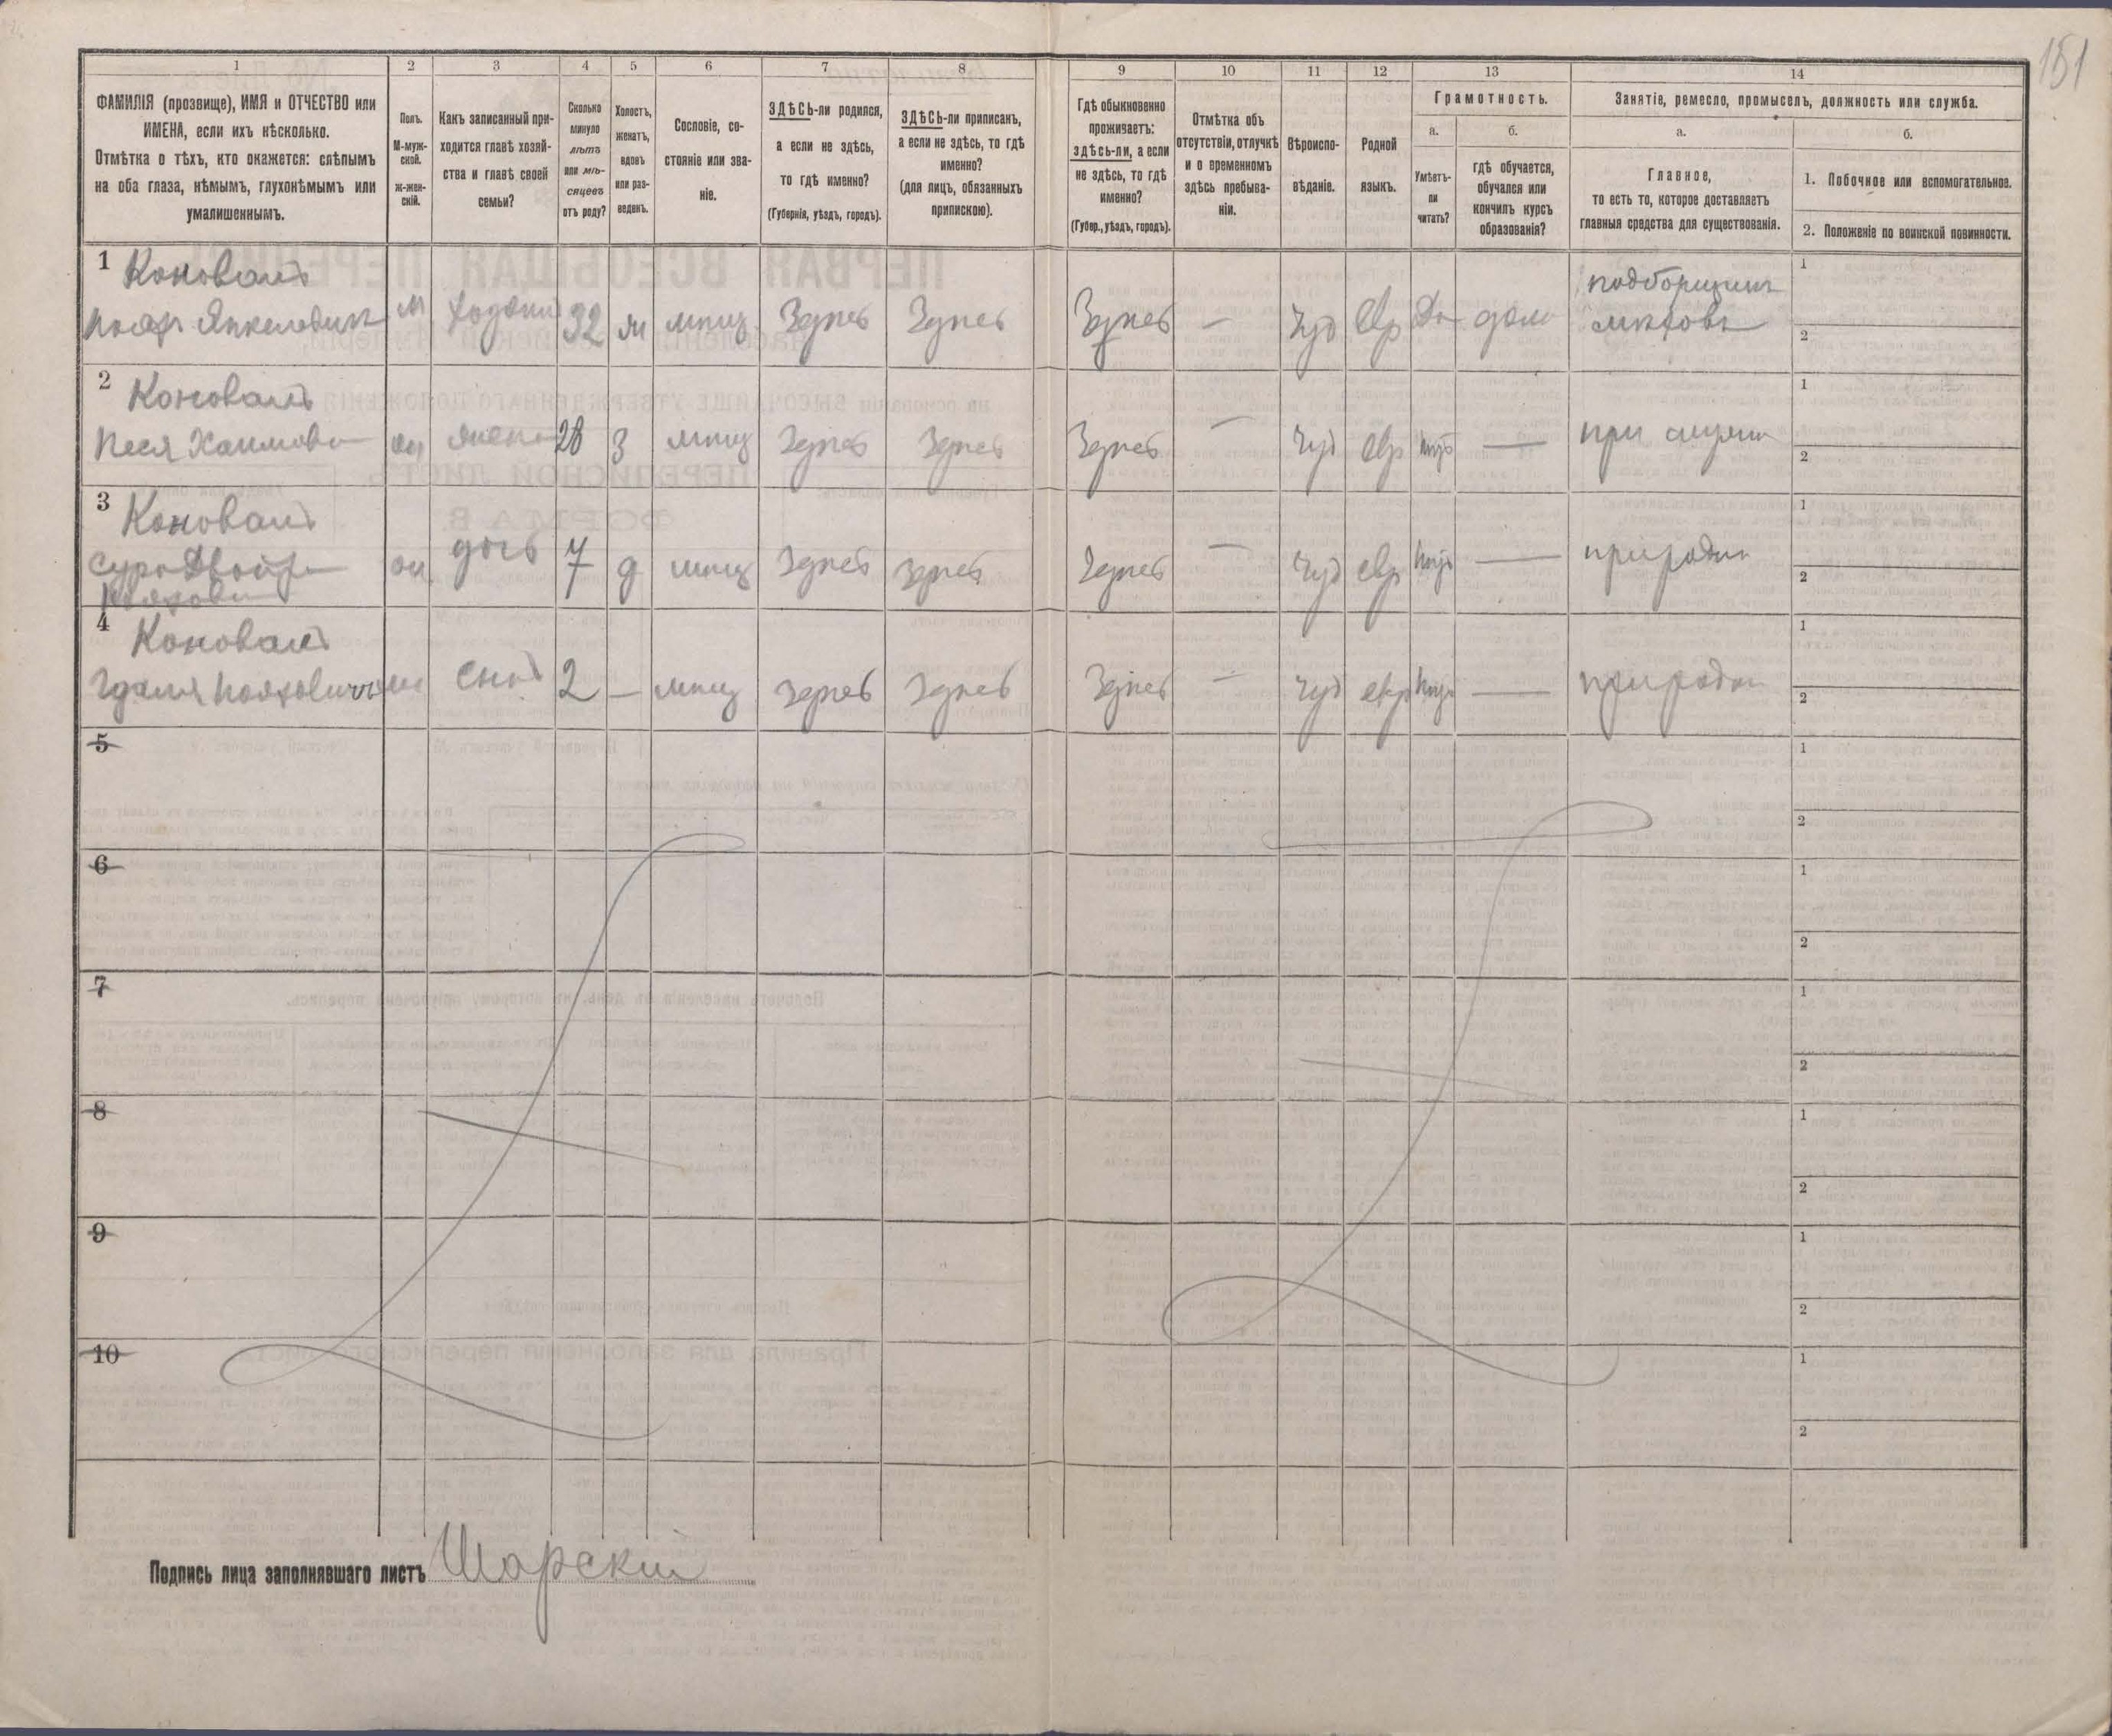 151
1
2
3
4
5
6
7
8
9
10
11
12
13
14
ФАМИЛІЯ (прозвище), ИМЯ и ОТЧЕСТВО или
ИМЕНА, если ихъ нѣсколько.
Отмѣтка о тѣхъ, кто окажется: слѣпымъ
на оба глаза, нѣмымъ, глухонѣмымъ или
умалишеннымъ.
Полъ.
М-муж-
ской.
Ж-жен-
скій.
Какъ записанный при-
ходится главѣ хозяй-
ства и главѣ своей
семьи?
Сколько
минуло
лѣтъ
или мѣ-
сяцевъ
отъ роду?
Холостъ,
женатъ,
вдовъ
или раз-
веденъ.
Сословіе, со-
стояніе или зва-
ніе.
ЗДѢСЬ-ли родился,
а если не здѣсь,
то гдѣ именно?
(Губернія, уѣздъ, городъ).
ЗДѢСЬ-ли приписанъ,
а если не здѣсь, то гдѣ
именно?
(для лицъ, обязанныхъ
припискою).
Гдѣ обыкновенно
проживаетъ:
здѣсь-ли, а если
не здѣсь, то гдѣ
именно?
(Губер., уѣздъ, городъ).
Отмѣтка объ
отсутствіи, отлучкѣ
и о временномъ
здѣсь пребыва-
ніи.
Вѣроиспо-
вѣданіе.
Родной
языкъ.
Грамотность.
а.
Умѣетъ-
ли
читать?
б.
гдѣ обучается,
обучался или
кончилъ курсъ
образованія?
Занятіе, ремесло, промыселъ, должность или служба.
а.
Главное,
то есть то, которое доставляетъ
главныя средства для существованія.
б.
1. Побочное или вспомогательное.
2. Положеніе по воинской повинности.
1 Коновалъ
Янкелевичъ м 32 мѣщ Здѣсь Здѣсь Здѣсь — іуд евр Да дома подборщикъ
мѣховъ
1
2
2 Коновалъ
Песя Хаимова жена 28 з мѣщ Здѣсь Здѣсь Здѣсь — іуд евр — при мужѣ
1
2
3 Коновалъ
Сура Двойра дочь 7 д мѣщ Здѣсь Здѣсь Здѣсь — іуд евр — при родит
1
2
4 Коновалъ
Гдаля сынъ 2 — мѣщ Здѣсь Здѣсь Здѣсь — іуд евр — при родит
1
2
5
1
2
6
1
2
7
1
2
8
1
2
9
1
2
10
1
2
Подпись лица заполнявшаго листъ Шарскій